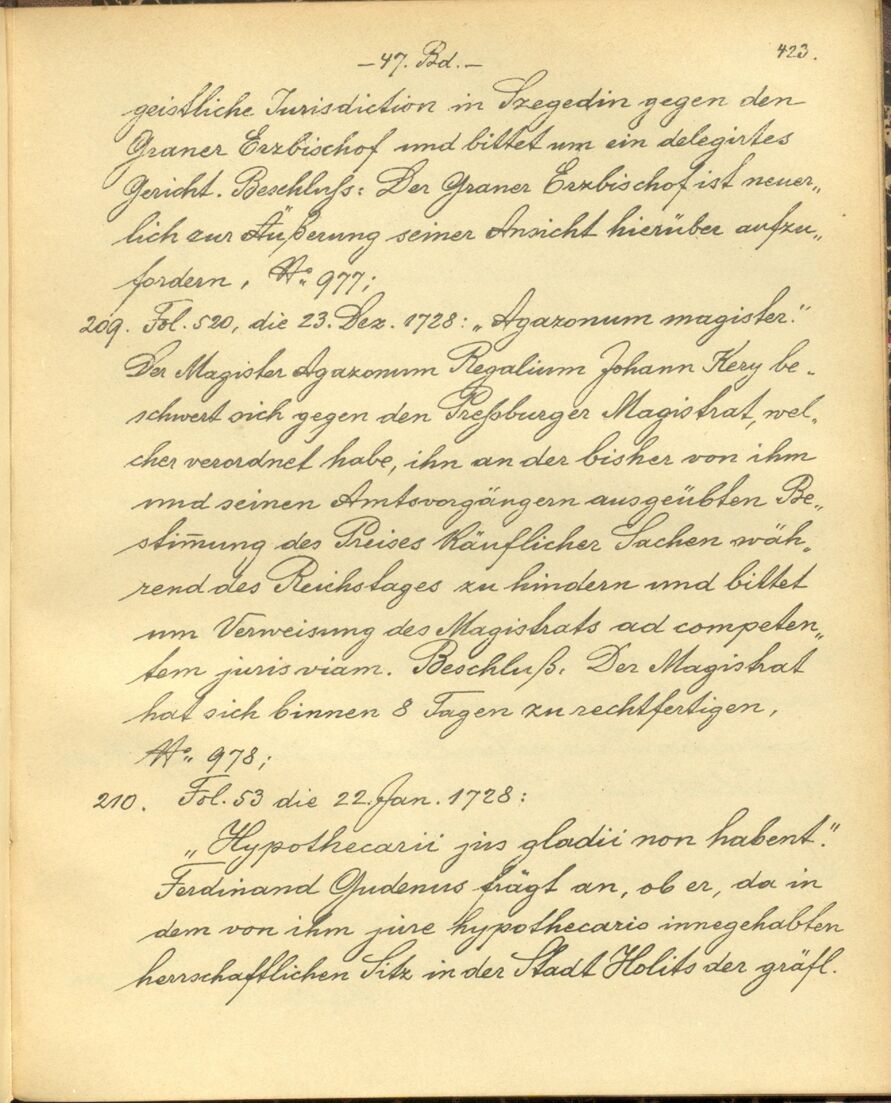 – 47. Bd. –
423.
geistliche Jurisdiction in Szegedin gegen den
Graner Erzbischof und bittet um ein delegirtes
Gericht. Beschluß: Der Graner Erzbischof ist neuer„
lich zur Äußerung seiner Ansicht hierüber aufzu„
fordern, No. 977;
209. Fol. 520, die 23. Dez. 1728: „Agazonum magister."
Der Magister Agazonum Regalium Johann Kery be-
schwert sich gegen den Preßburger Magistrat, wel„
cher verordnet habe, ihn an der bisher von ihm
und seinen Amtsvorgängern ausgeübten Be„
stim̄ung des Preises käuflicher Sachen wäh„
rend des Reichstages zu hindern und bittet
um Verweisung des Magistrats ad competen„
tem juris viam. Beschluß: Der Magistrat
hat sich binnen 8 Tagen zu rechtfertigen,
No. 978;
210. Fol. 53 die 22. Jan. 1728:
„Hypothecarii jus gladii non habent."
Ferdinand Gudenus frägt an, ob er, da in
dem von ihm jure hypothecario innegehabten
herrschaftlichen Sitz in der Stadt Holits der gräfl.